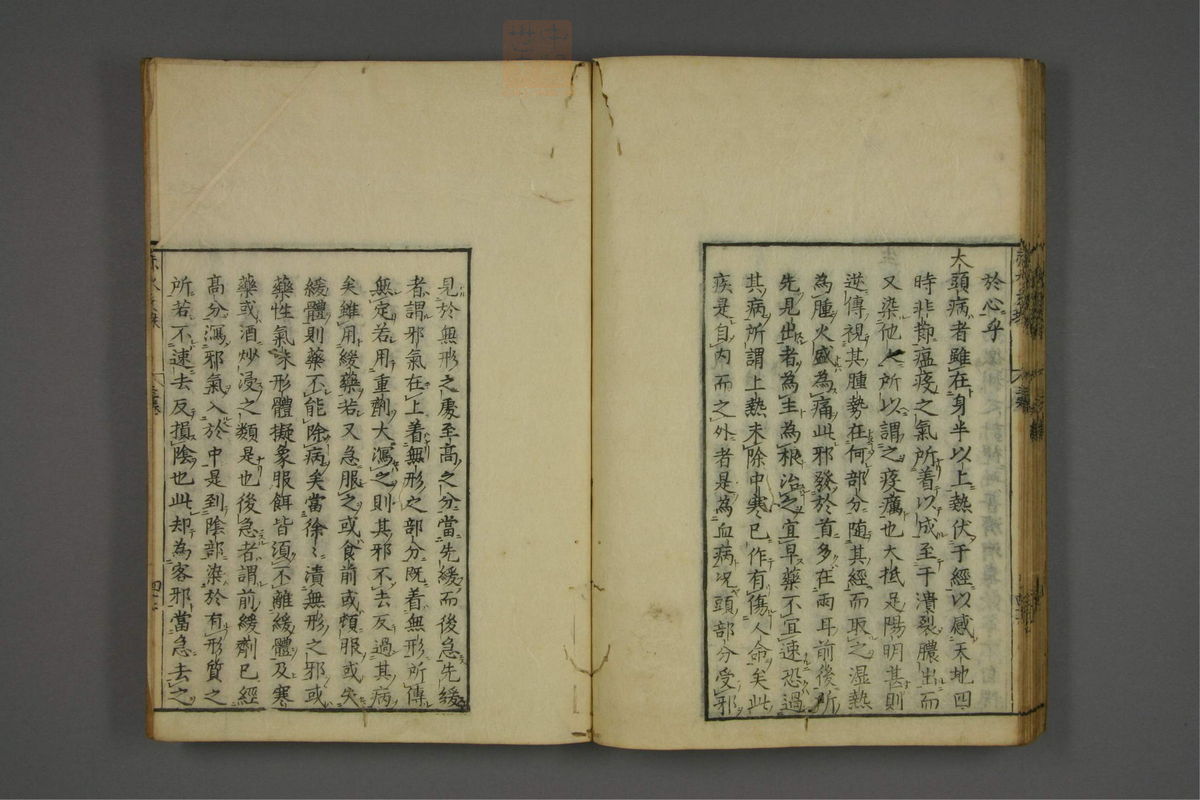 於心乎
大頭病者雖在身半以上熱伏于經以感天地四
時非節瘟疫之氣所着以成至于潰裂膿出而
又染他人所以謂之疫癘也大抵足陽明甚則
逆傳視其腫勢在何部分随其經而取之湿熱
為腫火盛為痛此邪發於首多在兩耳前後所
先見出者為主為根治之宜早藥不宜速恐過
其病所謂上熱未除中寒已作有傷人命矣此
疾是自內而之外者是為血病况頭部分受邪
見於無形之處至高之分當先緩而後急先緩
者謂邪氣在上着無形之部分既着無形所傳
無定若用重劑大瀉之則其邪不去反過其病
矣雖用緩藥若又急服之或食前或頓服或失
緩體則藥不能除病矣當徐〻漬無形之邪或
藥性氣味形體擬象服餌皆須不離緩體及寒
藥或酒炒浸之類是也後急者謂前緩劑已經
高分瀉邪氣入於中是到陰部染於有形質之
所若不速去反損陰也此却為客邪當急去之